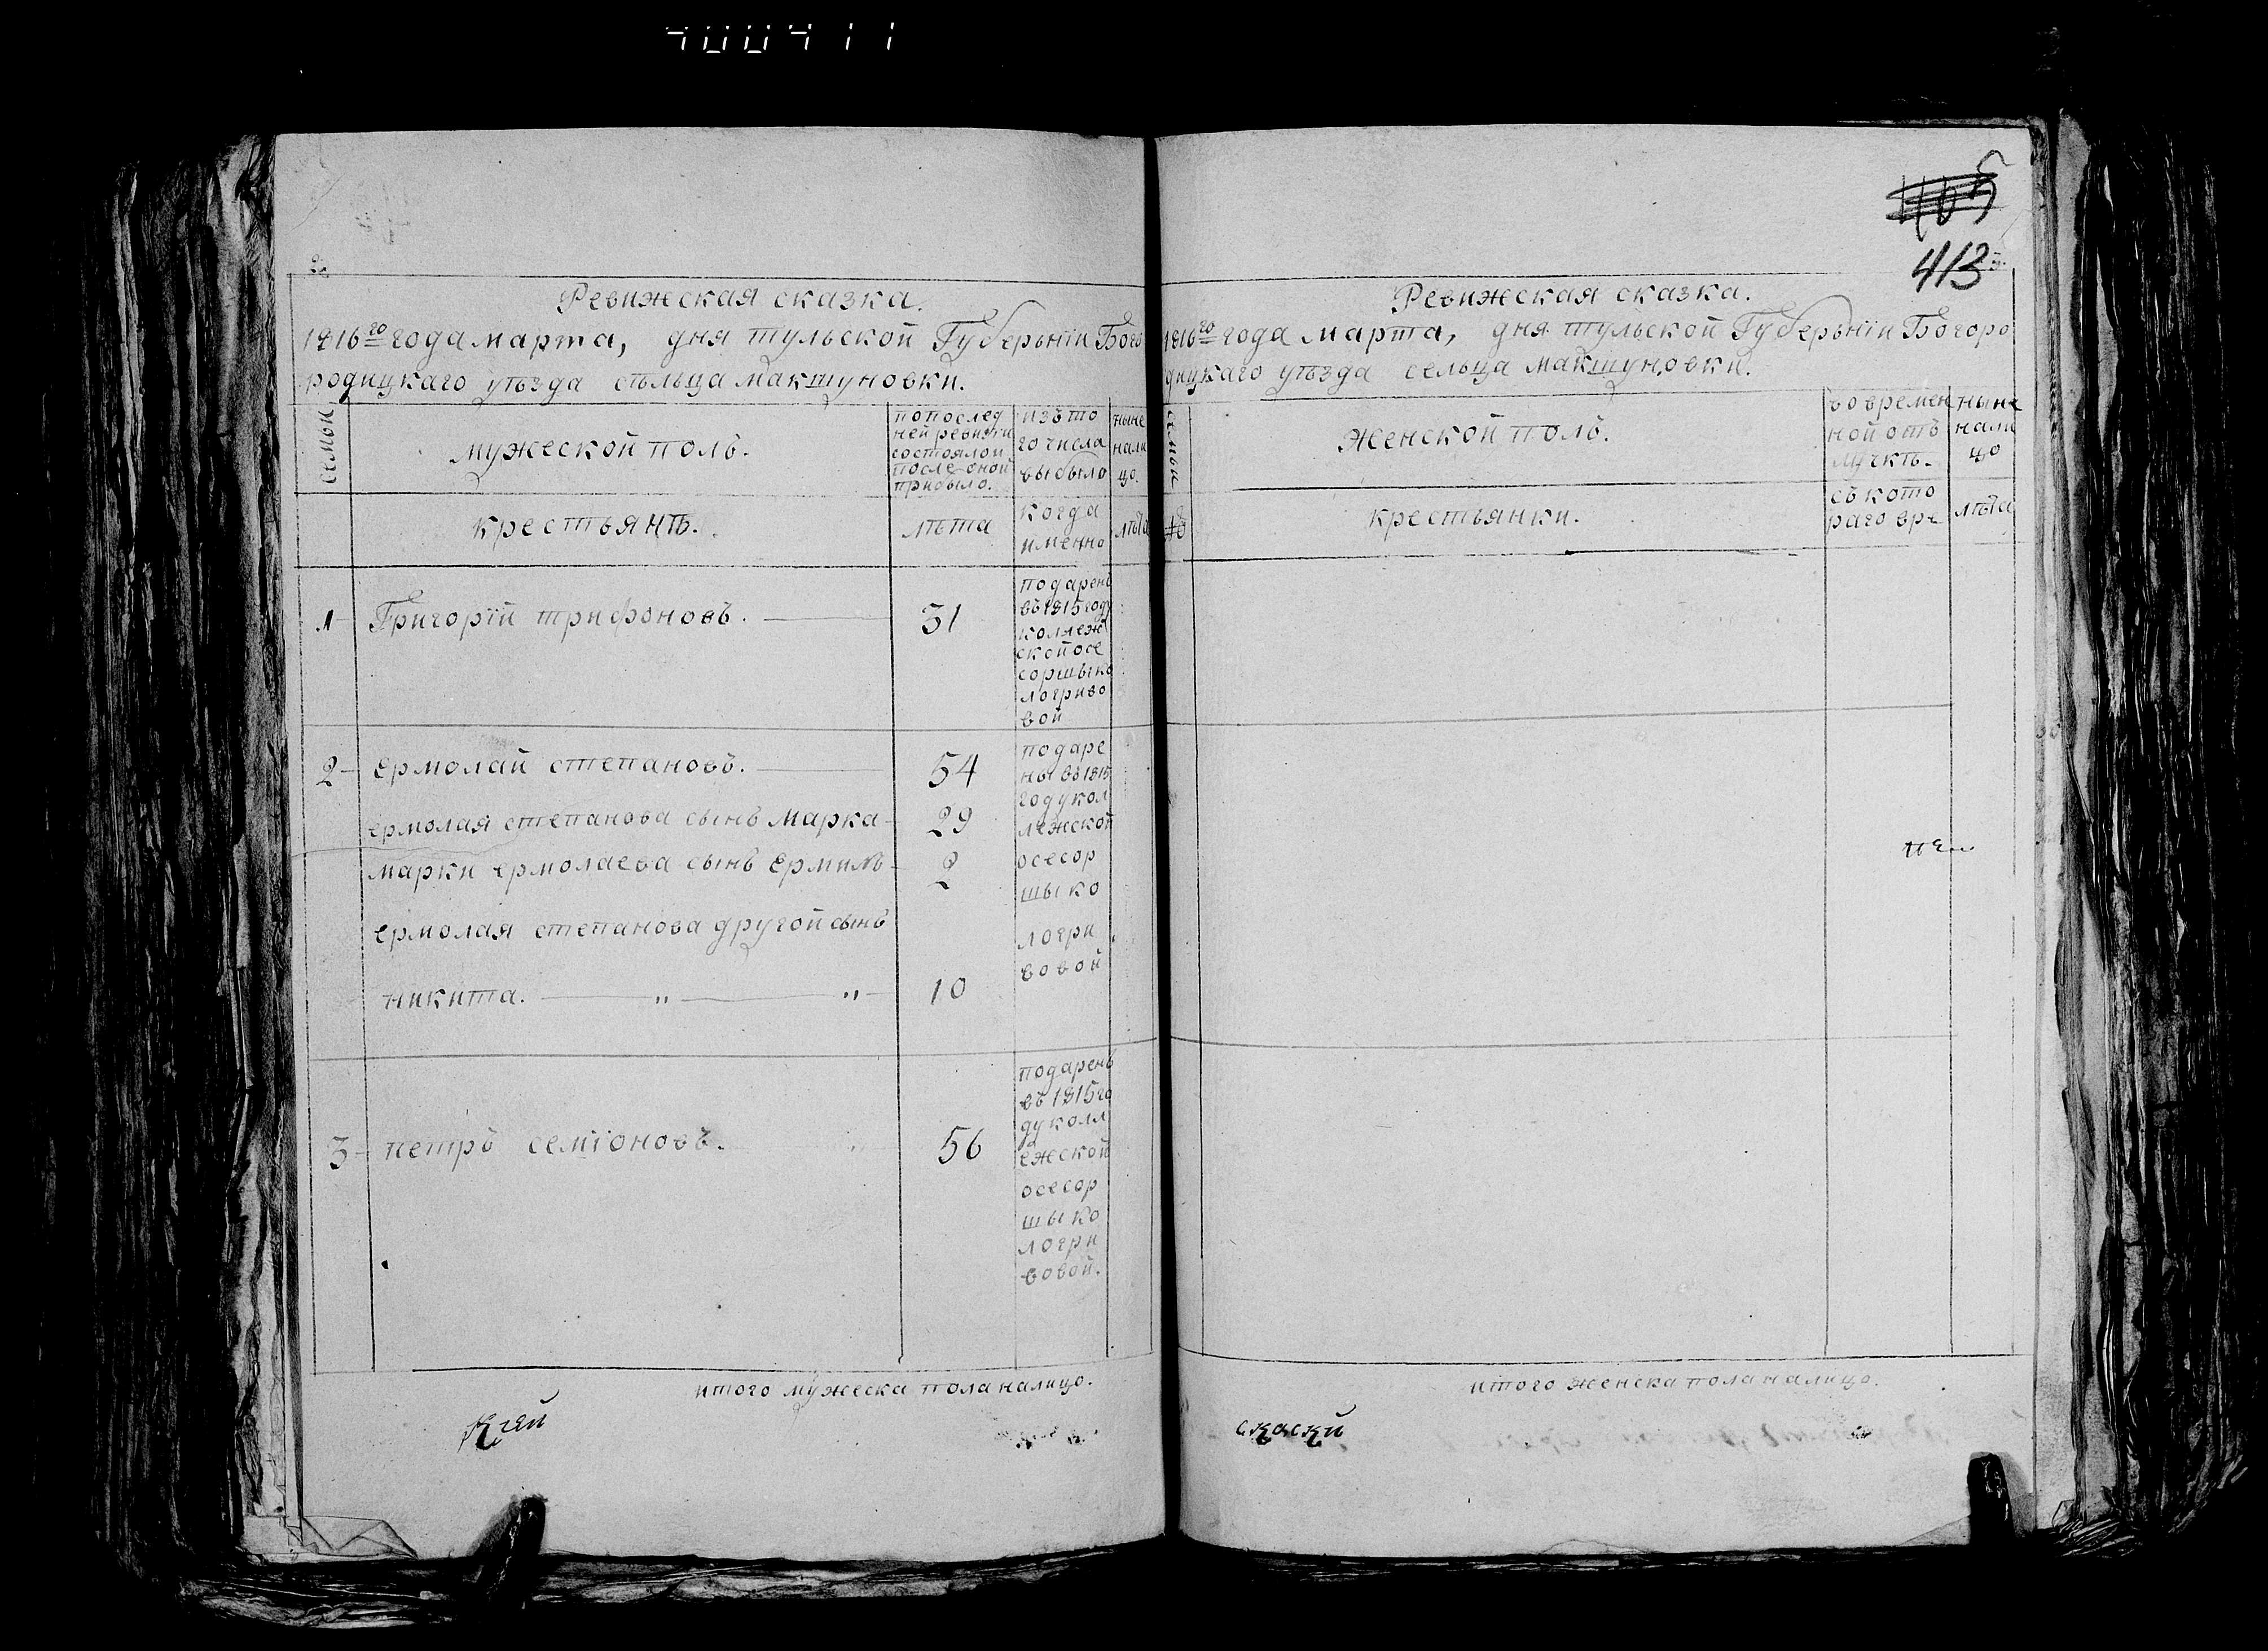 400411
405
413
Ревижская сказка.
1816го года марта, дня тульской Губерьнїи Бого
родицкаго уѣзда сѣльца макшуновки.
семьи
мужеской полъ.
попослед
ней ревизти
состоялои
после оной
прибыло.
изъ то
го числа
выбыло
ныне
нали
цо.
крестьянѣ.
лѣта
когда
именно
лѣта
1
Григорїй трифоновъ.
31
подаренъ
въ 1815 году
коллеж
ской осе
соршы ко
логриво
вой
2
ермолай степановъ.
54
ермолая степанова сынъ марка
29
марки ермолаева сынъ ермилъ
2
ермолая степанова другой сынъ
никита. " "
10
подаре
ны въ 1815
году кол
лежской
осесор
шы ко
логри
вовой
3
петръ семїоновъ.
56
подаренъ
въ 1815 го
ду колл
ежской
осесор
шы ко
логри
вовой.
итого мужеска пола налицо.
Кѣей
Ревижская сказка.
1816го года марта, дня тульской Губерьнїи Богоро
дицкаго уѣзда сельца макшуновки.
семьи
женской полъ.
во времен
ной отъ
лучкѣ.
ныне
нали
цо
крестьянки.
съ кото
раго вре
лѣта
итого женска пола налицо.
скаски